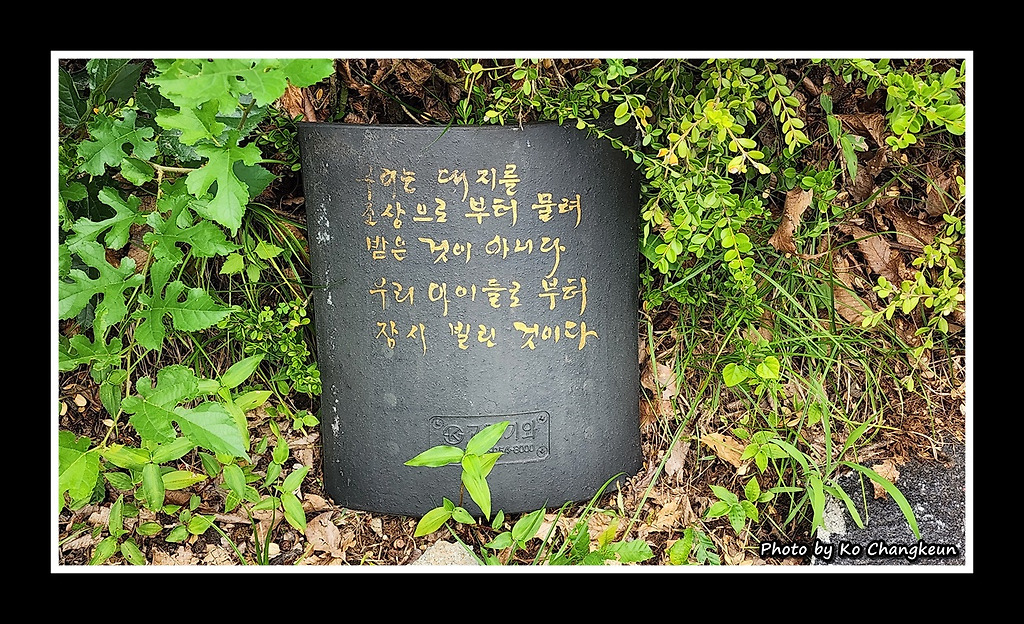 우리는 대지를
조상으로 부터 물려
받은 것이 아니다
우리 아이들로 부터
잠시 빌린 것이다
Photo by Ko Changkeun